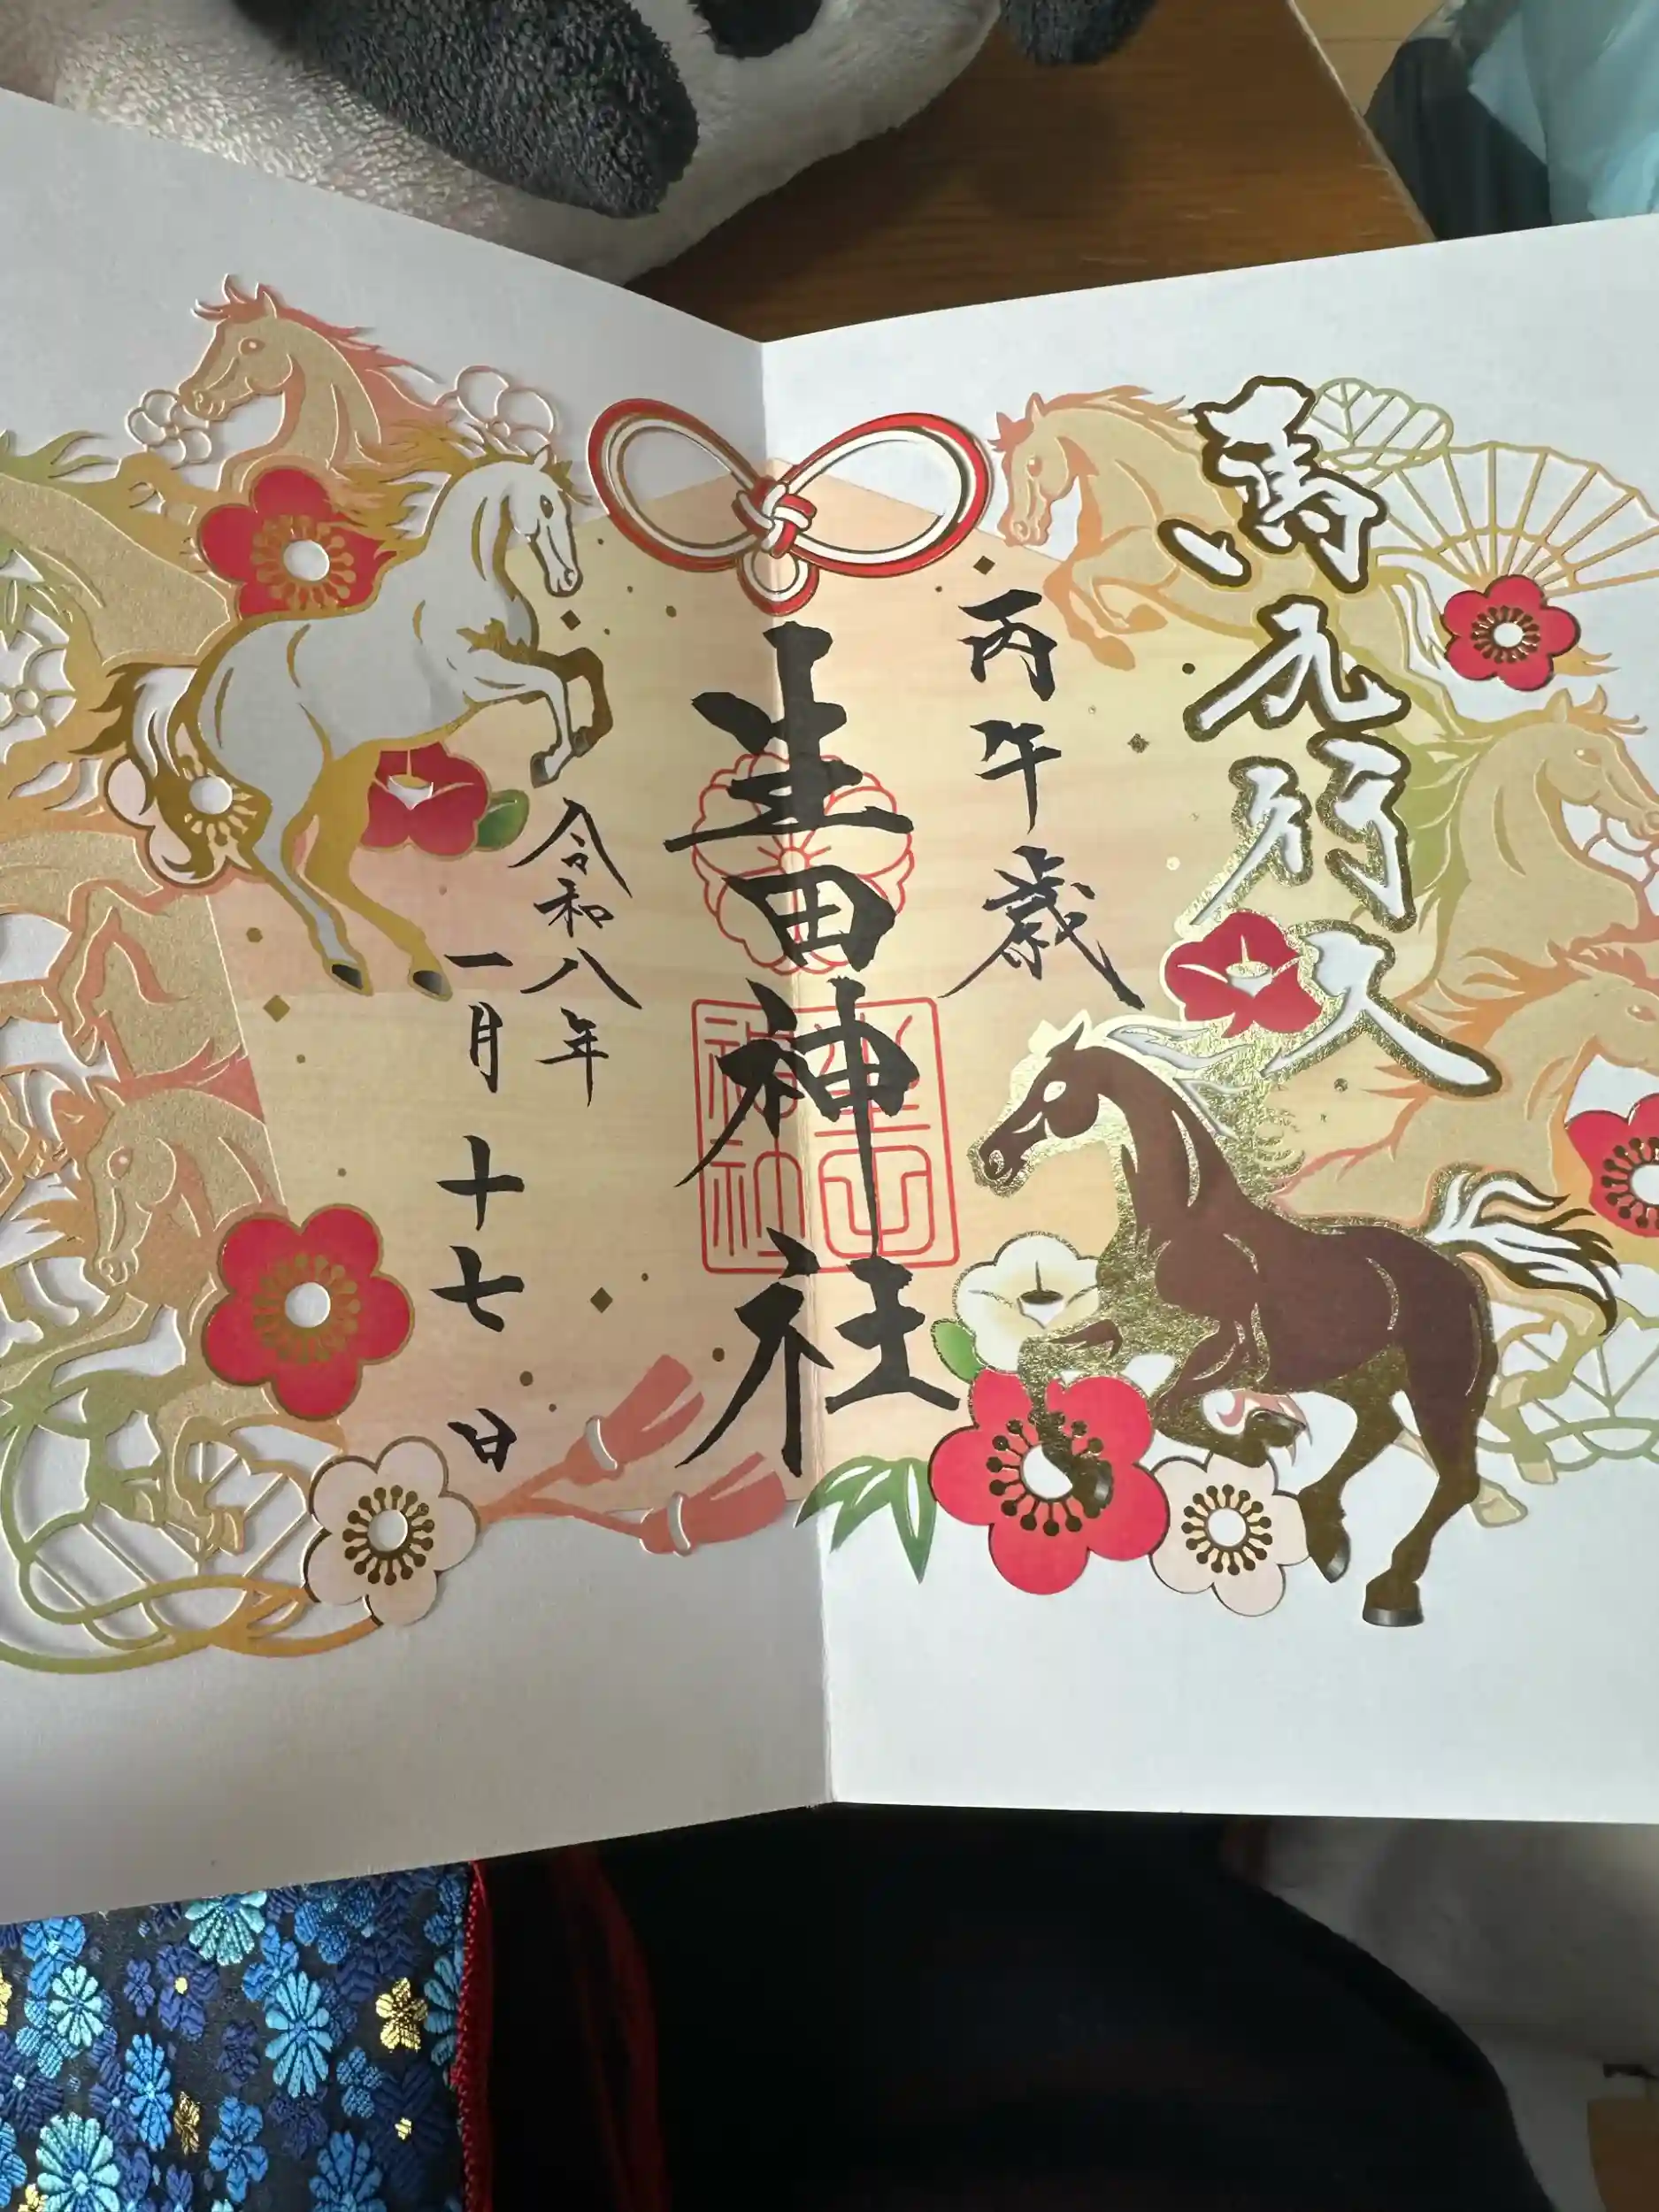 馬九行久
丙午歳
生田神社
生田
神社
令和八年
一月十七日